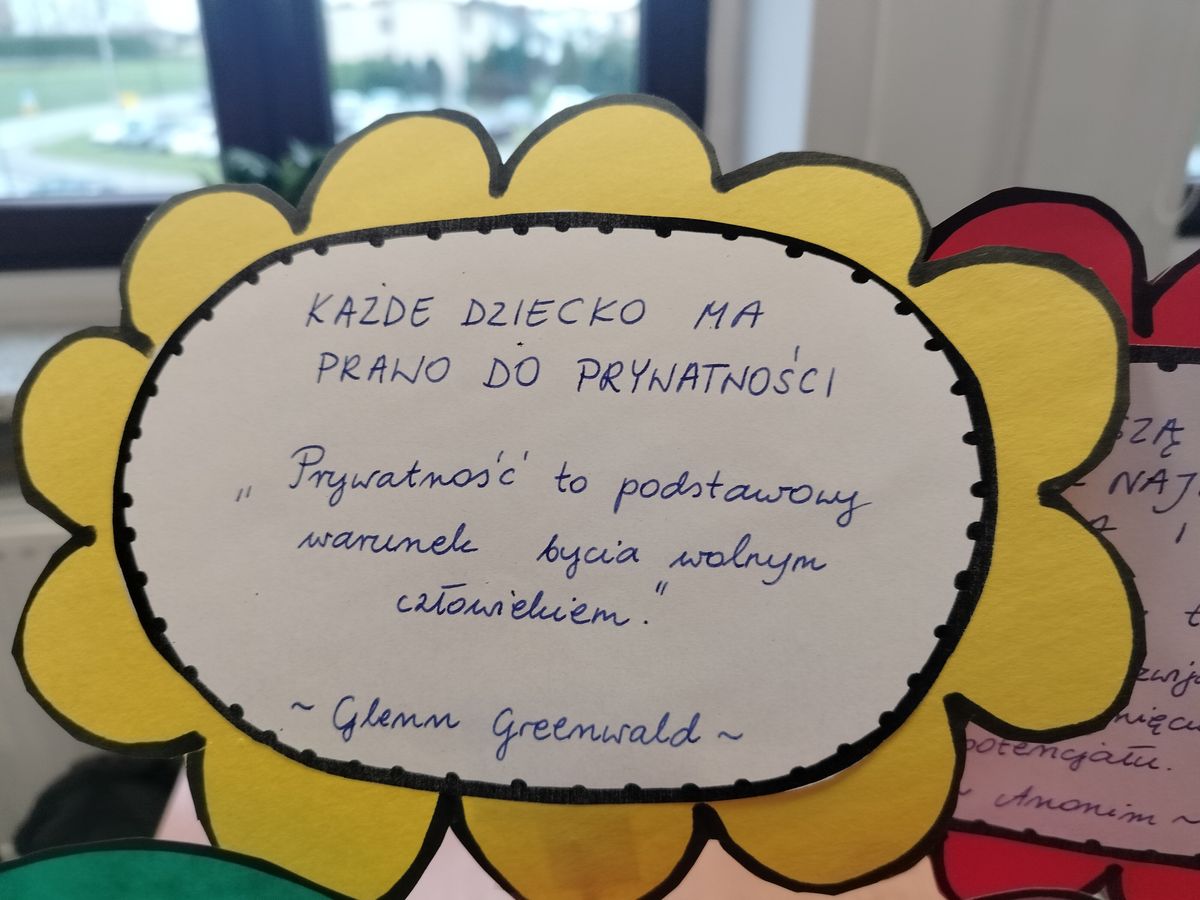 KAŻDE DZIECKO MA
PRAWO DO PRYWATNOŚCI
„Prywatność to podstawowy
warunek bycia wolnym
człowiekiem."
~ Glenn Greenwald ~
potencjału.
~ Anonim ~